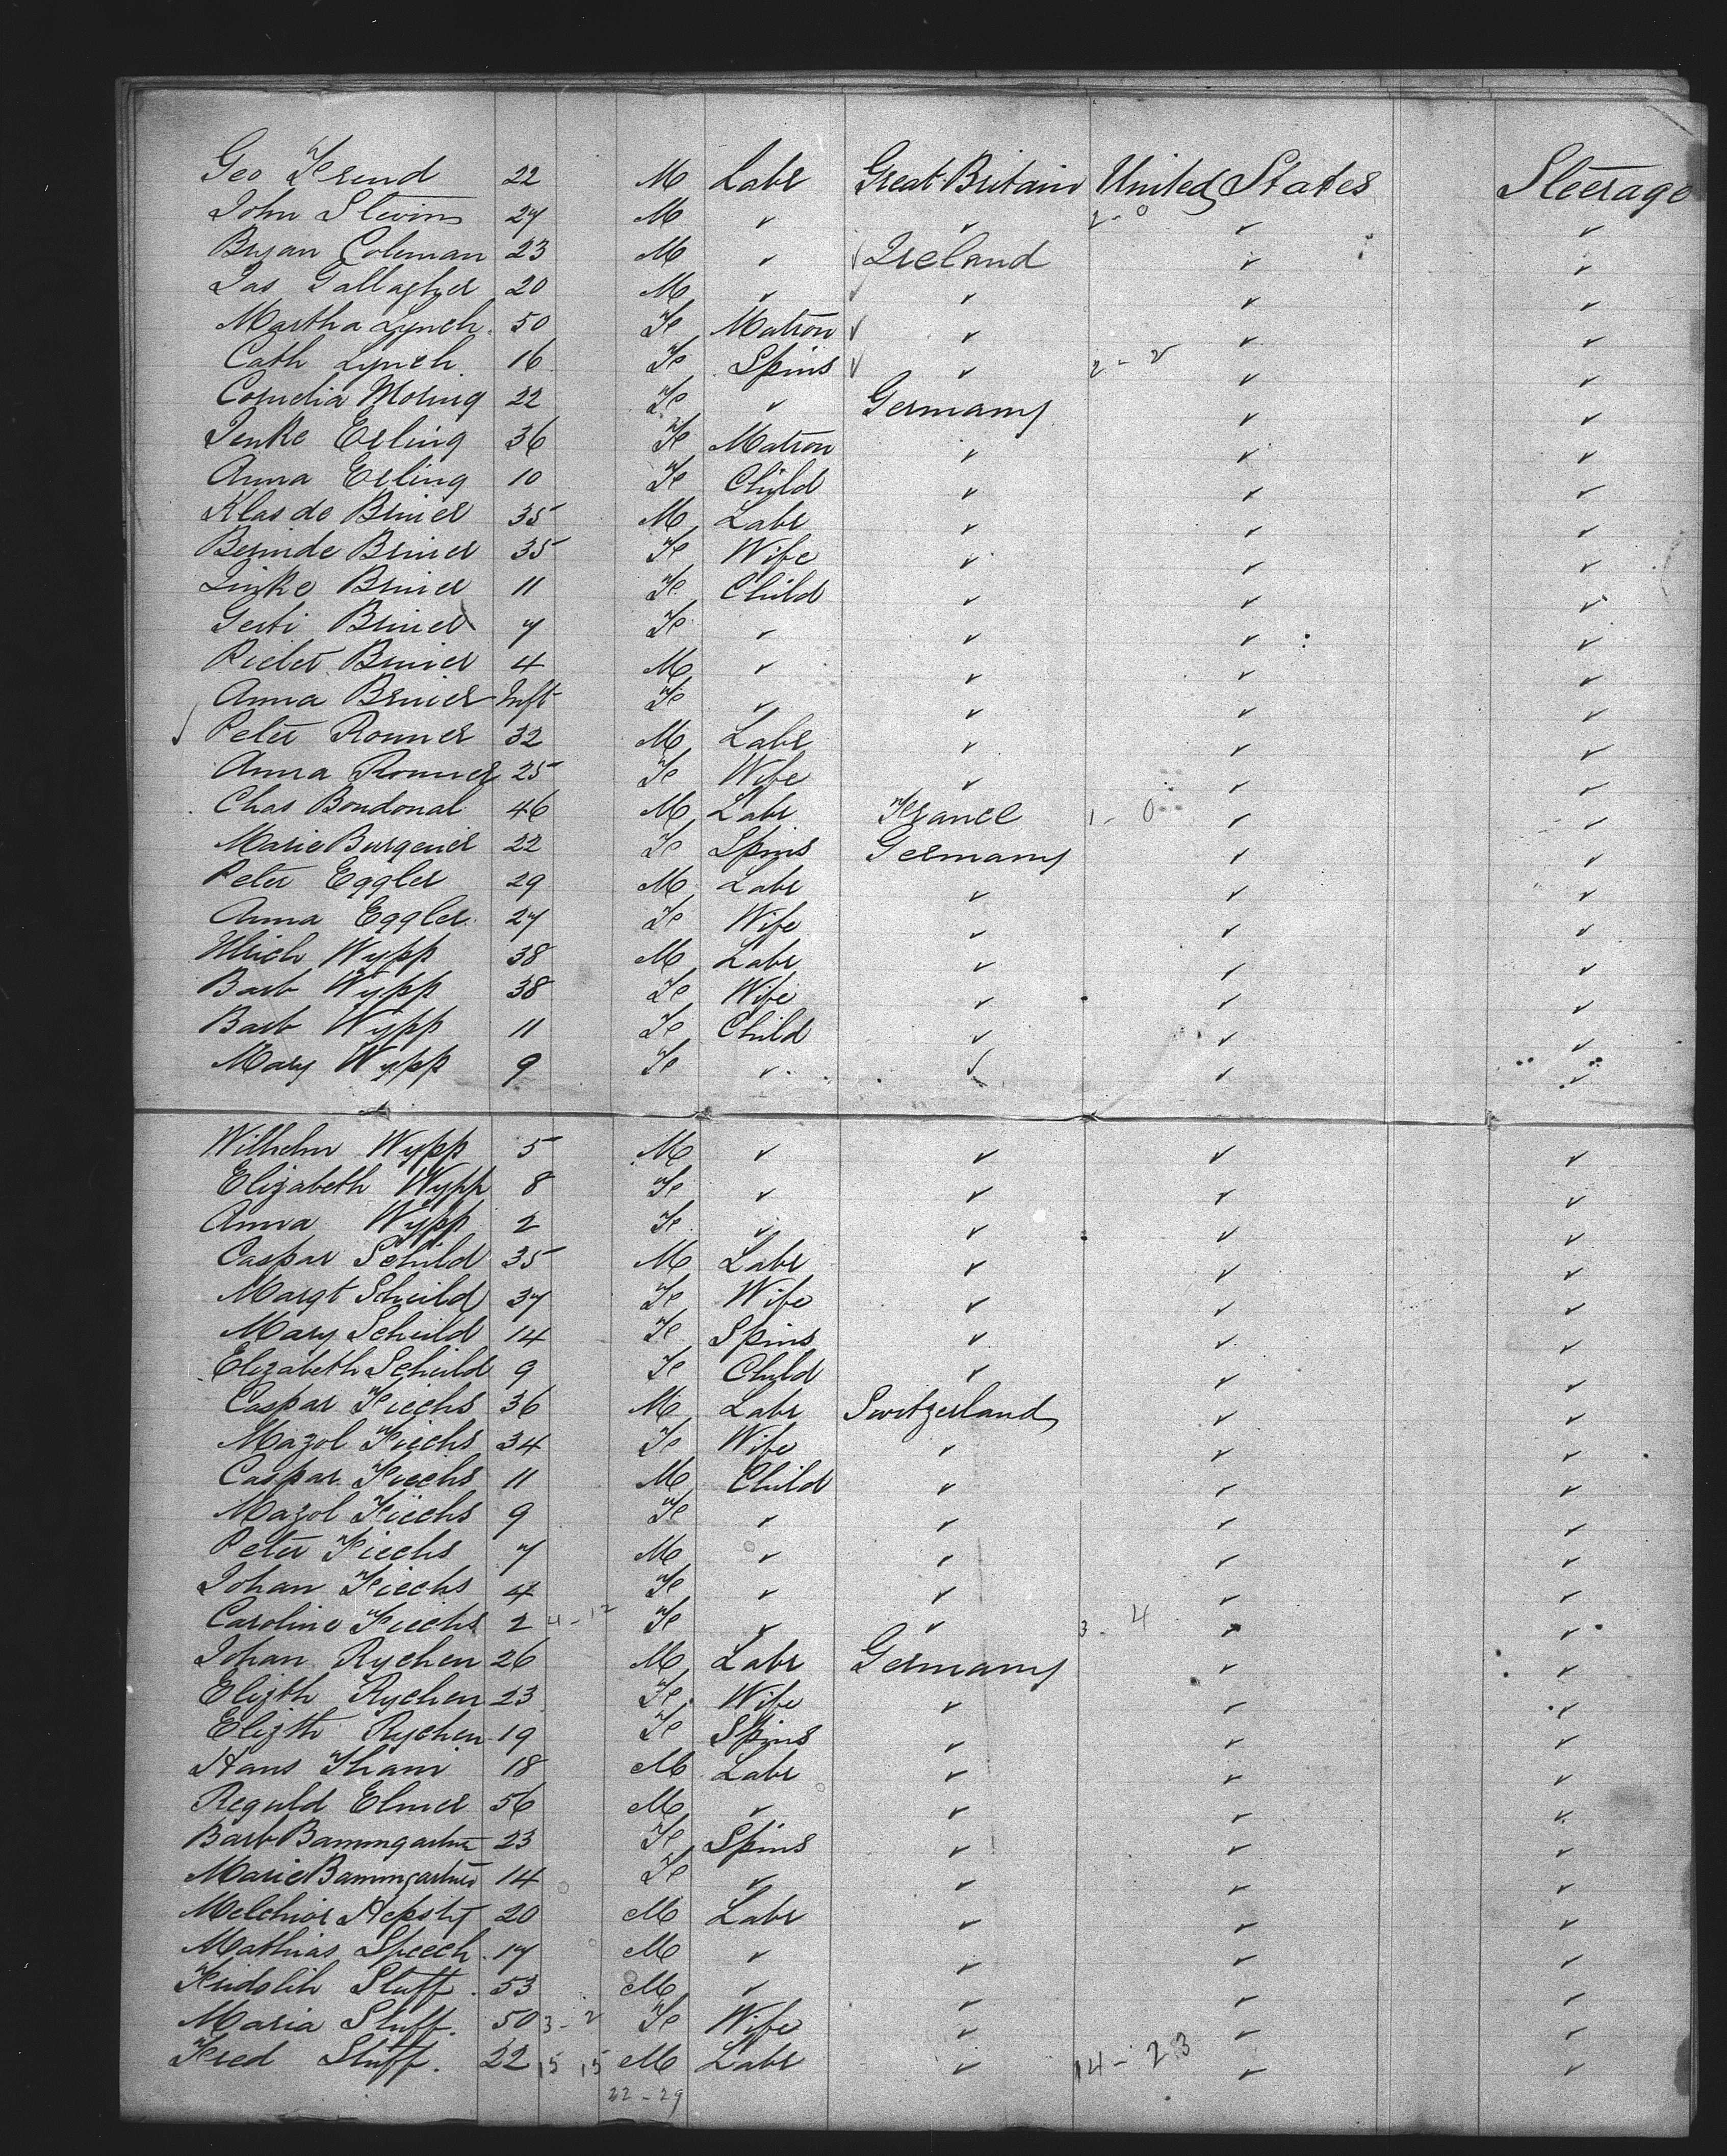 Geo Frend 22 M Labr Great Britain United States Steerage
John Stevins 27 M ✓ ✓ 2-0 ✓ ✓
Bryan Coleman 23 M ✓ ✓ Ireland ✓ ✓
Jas Gallagher 20 M ✓ ✓ ✓ ✓ ✓
Martha Lynch. 50 Fe Matron ✓ ✓ ✓ ✓
Cath Lynch. 16 Fe Spins ✓ ✓ 2-2 ✓ ✓
Cornelia Moring 22 Fe ✓ Germany ✓ ✓
Jenke Erling 36 Fe Matron ✓ ✓ ✓
Anna Erling 10 Fe Child ✓ ✓ ✓
Klas de Bruier 35 M Labr ✓ ✓ ✓
Berinde Bruier 35 Fe Wife ✓ ✓ ✓
Linke Bruier 11 Fe Child ✓ ✓ ✓
Gerti Bruier 7 Fe ✓ ✓ ✓ ✓
Pieter Bruier 4 M ✓ ✓ ✓ ✓
Anna Bruier Inft Fe ✓ ✓ ✓ ✓
✓ Peter Ronner 32 M Labr ✓ ✓ ✓
Anna Ronner 25 Fe Wife ✓ ✓ ✓
Chas Bondonal 46 M Labr France 1-0 ✓ ✓
Marie Burgener 22 Fe Spins Germany ✓ ✓
Peter Eggler 29 M Labr ✓ ✓ ✓
Anna Eggler 27 Fe Wife ✓ ✓ ✓
Ulrich Wypp 38 M Labr ✓ ✓ ✓
Barb Wypp 38 Fe Wife ✓ ✓ ✓
Barb Wypp 11 Fe Child ✓ ✓ ✓
Mary Wypp 9 Fe ✓ ✓ ✓ ✓
Wilhelm Wypp 5 M ✓ ✓ ✓ ✓
Elizabeth Wypp 8 Fe ✓ ✓ ✓ ✓
Anna Wypp 2 Fe ✓ ✓ ✓ ✓
Caspar Schild 35 M Labr ✓ ✓ ✓
Margt Schild 37 Fe Wife ✓ ✓ ✓
Mary Schild 14 Fe Spins ✓ ✓ ✓
Elizabeth Schild 9 Fe Child ✓ ✓ ✓
Caspar Fiechs 36 M Labr Switzerland ✓ ✓
Mazol Fiechs 34 Fe Wife ✓ ✓ ✓
Caspar Fiechs 11 M Child ✓ ✓ ✓
Mazol Fiechs 9 Fe ✓ ✓ ✓ ✓
Peter Fiechs 7 M ✓ ✓ ✓ ✓
Johan Fiechs 4 Fe ✓ ✓ ✓ ✓
Caroline Fiechs 2 4-12 Fe ✓ ✓ 3-4 ✓ ✓
Johan Rychen 26 M Labr Germany ✓ ✓
Elizth Rychen 23 Fe Wife ✓ ✓ ✓
Elizth Rychen 19 Fe Spins ✓ ✓ ✓
Hans Thani 18 M Labr ✓ ✓ ✓
Reguld Elmer 56 M ✓ ✓ ✓ ✓
Barb Bammgartner 23 Fe Spins ✓ ✓ ✓
Marie Bammgartner 14 Fe ✓ ✓ ✓ ✓
Melchior Hepsty 20 M Labr ✓ ✓ ✓
Mathias Speech. 17 M ✓ ✓ ✓ ✓
Fridolih Stuff. 53 M ✓ ✓ ✓ ✓
Maria Stuff. 50 3-2 Fe Wife ✓ ✓ ✓
Fred Stuff. 22 15 15 M Labr ✓ 14-23 ✓ ✓
22-29